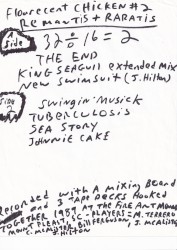 Flourecent CHICKEN #2
RE MANTIS + RARATIS
A Side
32 ÷ 16 = 2
THE END
KING SEAGULL extended mix
NEW SWIMSUIT (J. Hilton)
Side 2
Swingin' Musick
TUBERCULOSIS
SEA STORY
JOHNNIE CAKE
Recorded with A MIXING BOARD
and 3 TAPE DECKS HOOKED
TOGETHER 1987 AT THE FIRE ANT MOUND
MOUNT PLEASANT, SC - PLAYERS - M. TERRERO
C. MCALISTER, BILL FERGUSON, J. MCALISTER
J. Hilton